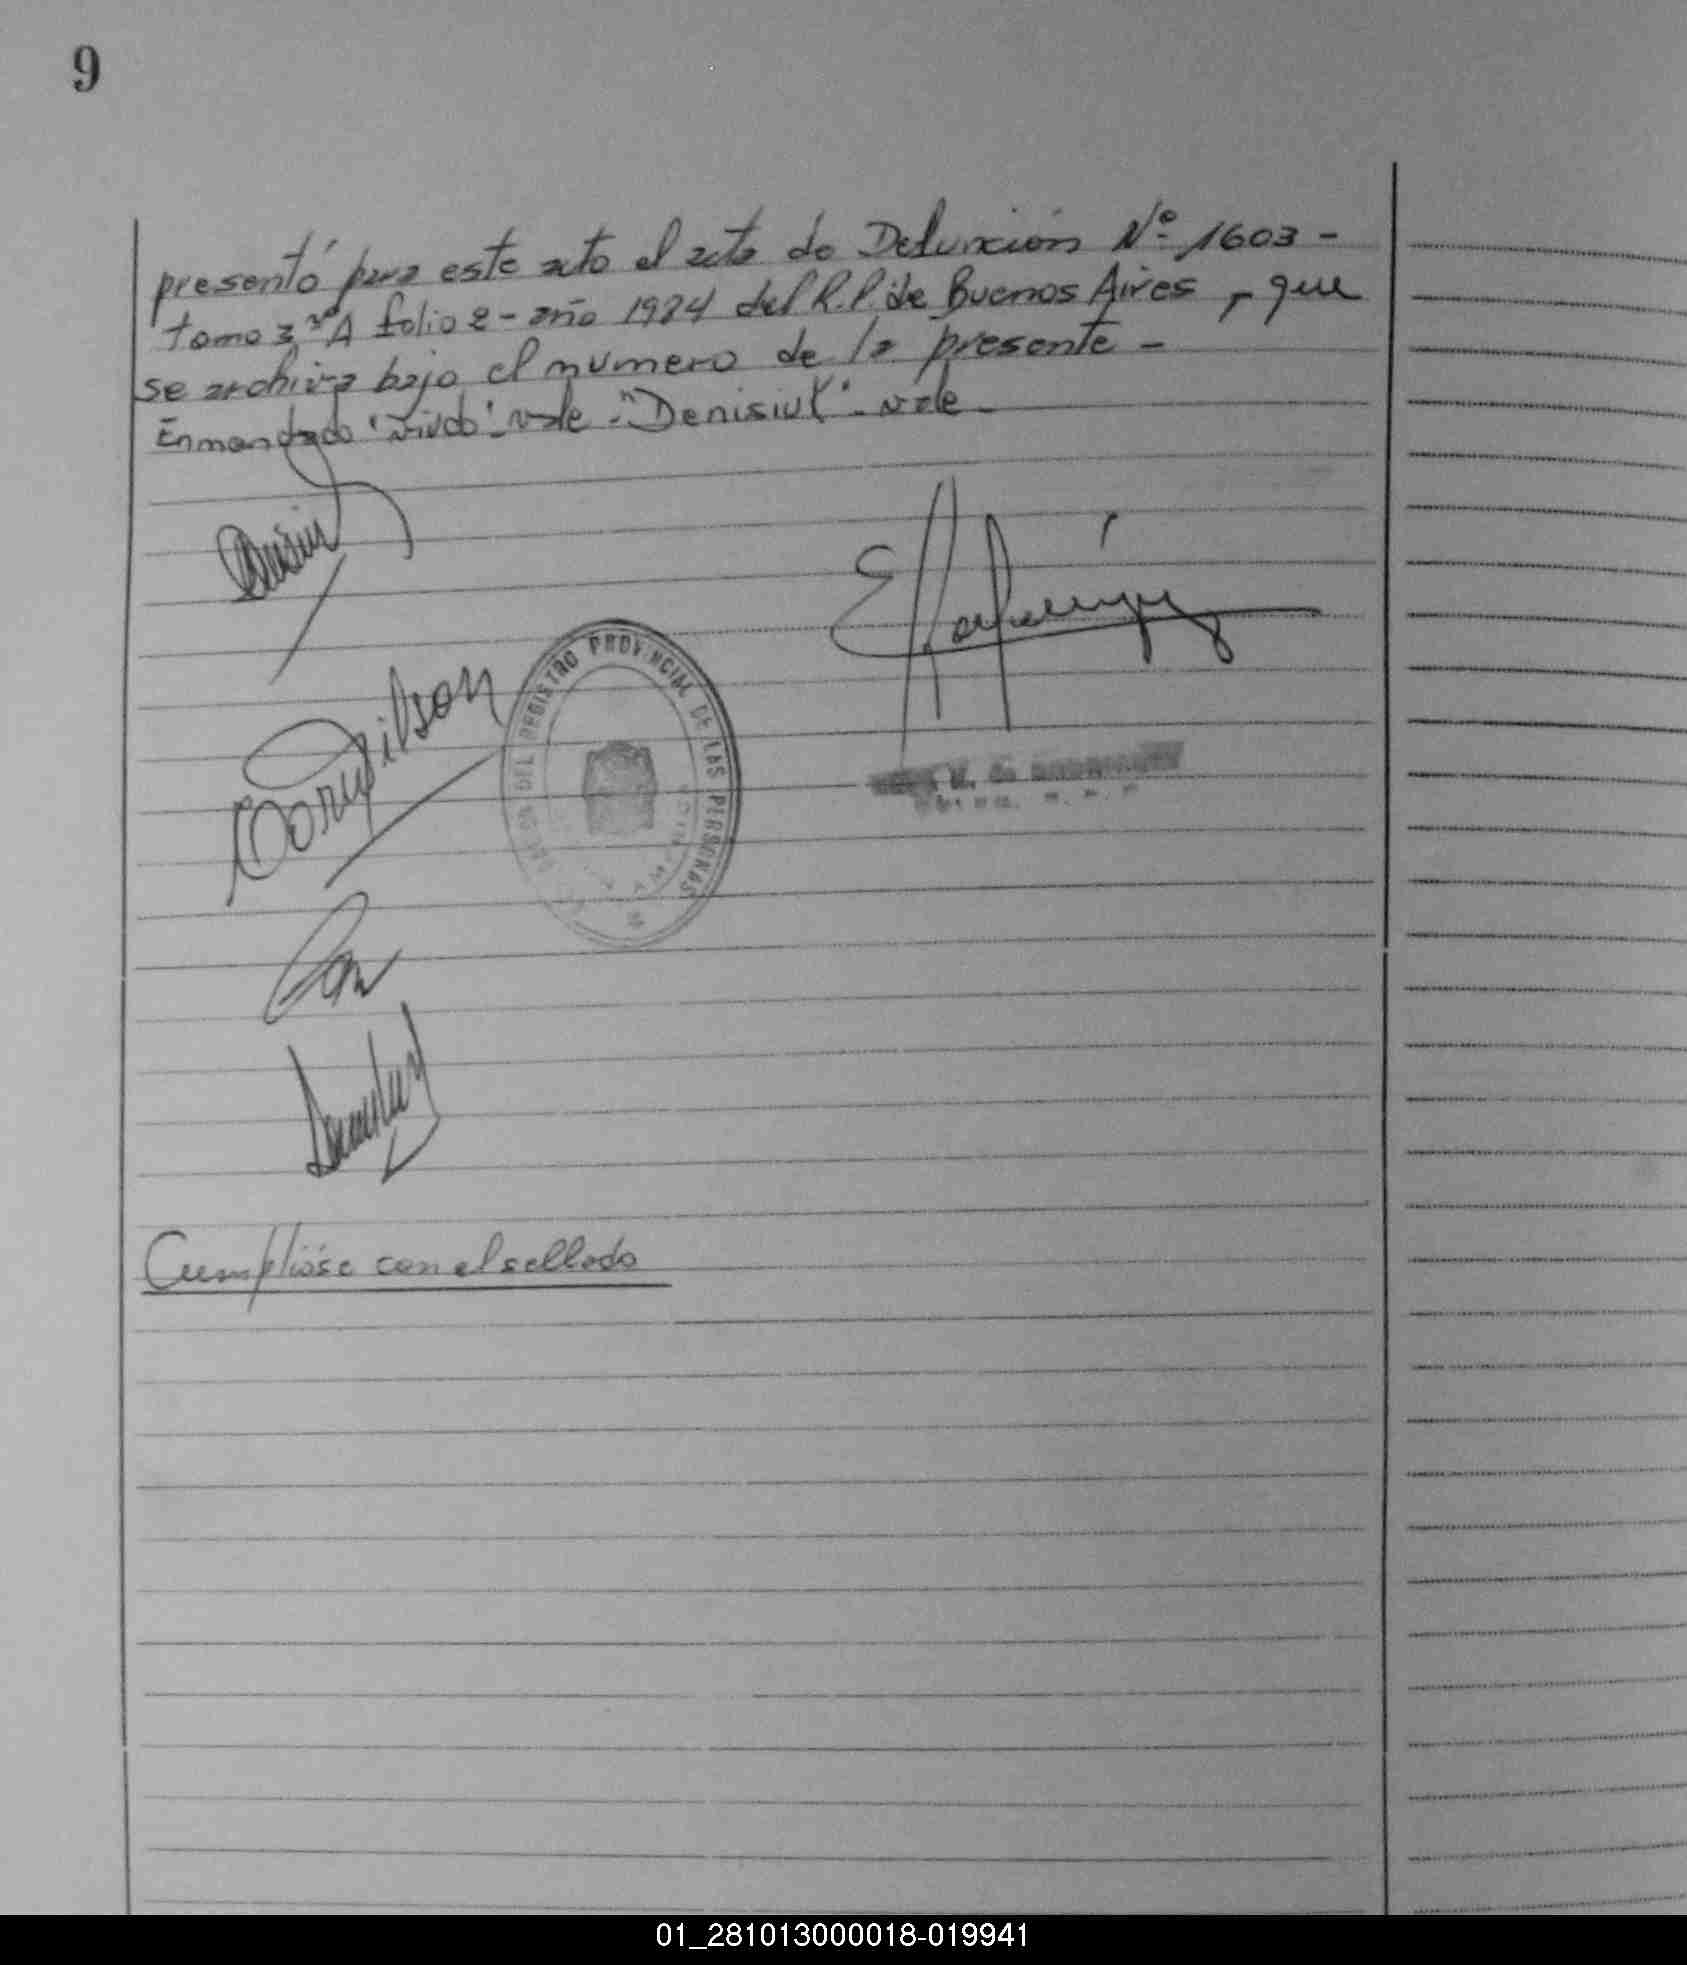 9
presentó para este acto el acta de Defunción Nº 1603 -
tomo 3 A folio 2 - año 1984 del R.P. de Buenos Aires, que
se archiva bajo el numero de la presente -
Enmendado "viudo" - vale - "Denisiuk" - vale -
DEL REGISTRO PROVINCIAL DE LAS PERSONAS
Cumplióse con el sellado
01_281013000018-019941